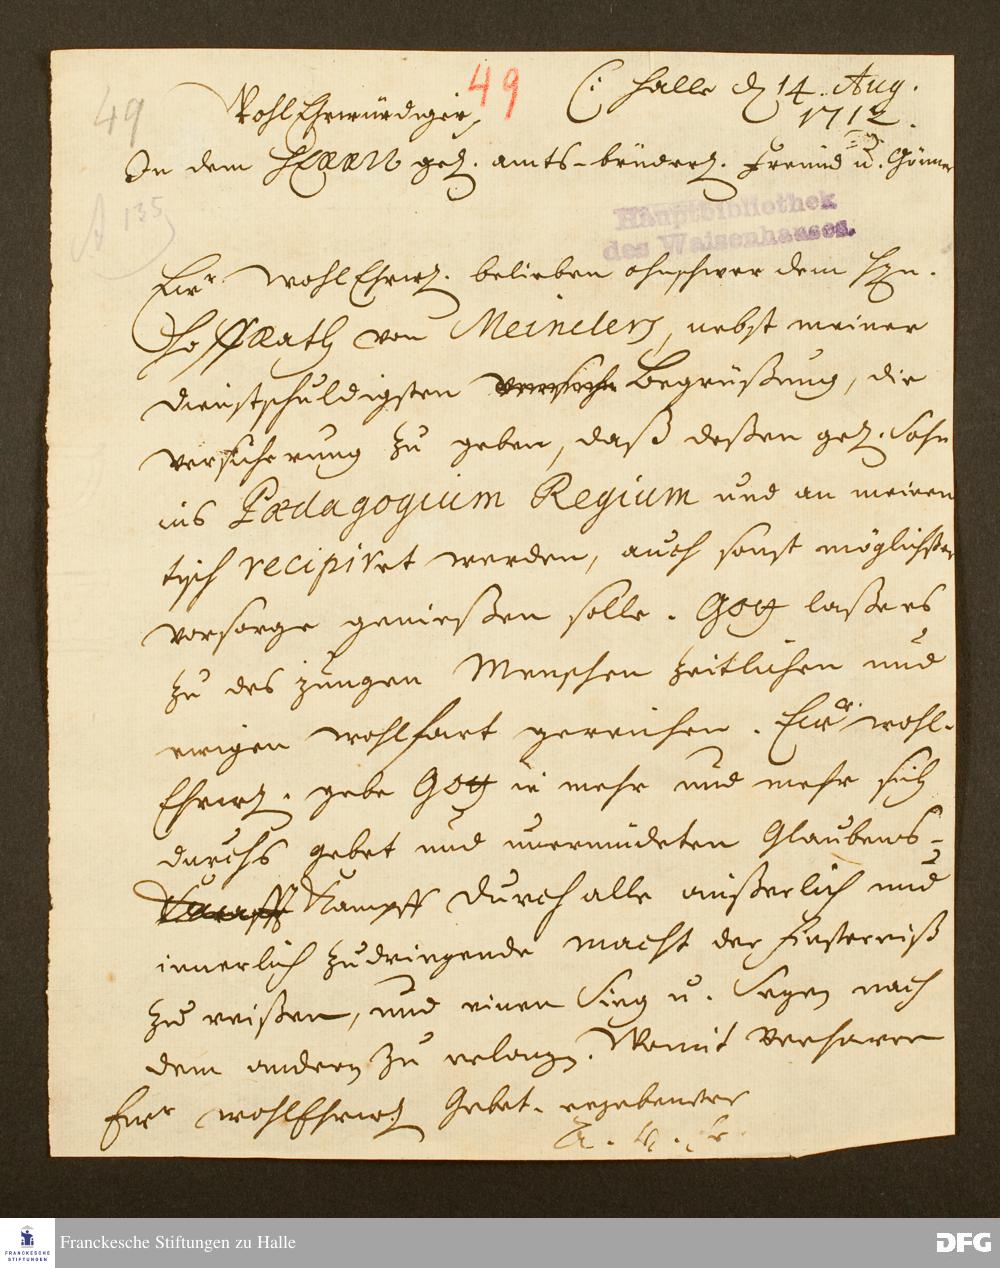 49
49
C: Halle d 14. Aug.
1712.
WohlEhrwürdiger,
In dem HErrn gel. amts-brüderl. Freund u. Gönner
A 135
Hauptbibliothek
des Waisenhauses.
Ewr WohlEhrw. belieben ohnschwer dem Hrn.
Hoffrath von Meinders, nebst meiner
dienstschuldigsten Begrüßung, die
versicherung zu geben, daß deßen gel. Sohn
ins Pædagogium Regium und an meinen
tisch recipiret werden, auch sonst möglichster
vorsorge genießen solle. Gott laße es
zu des jungen Menschen zeitlichen und
ewigen wohlfart gereichen. Ewr wohl-
Ehrw. gebe Gott ie mehr und mehr sich
durchs gebet und unermüdeten Glaubens-
Kampff durch alle äußerlich und
innerlich zudringende macht der Finsterniß
zu reißen, und einen Sieg u. Segen nach
dem andern zu erlangen. Womit verharre
Ewr wohlEhrw Gebet. ergebenster
A. H. Fr.
FRANCKESCHE
STIFTUNGEN
Franckesche Stiftungen zu Halle
DFG